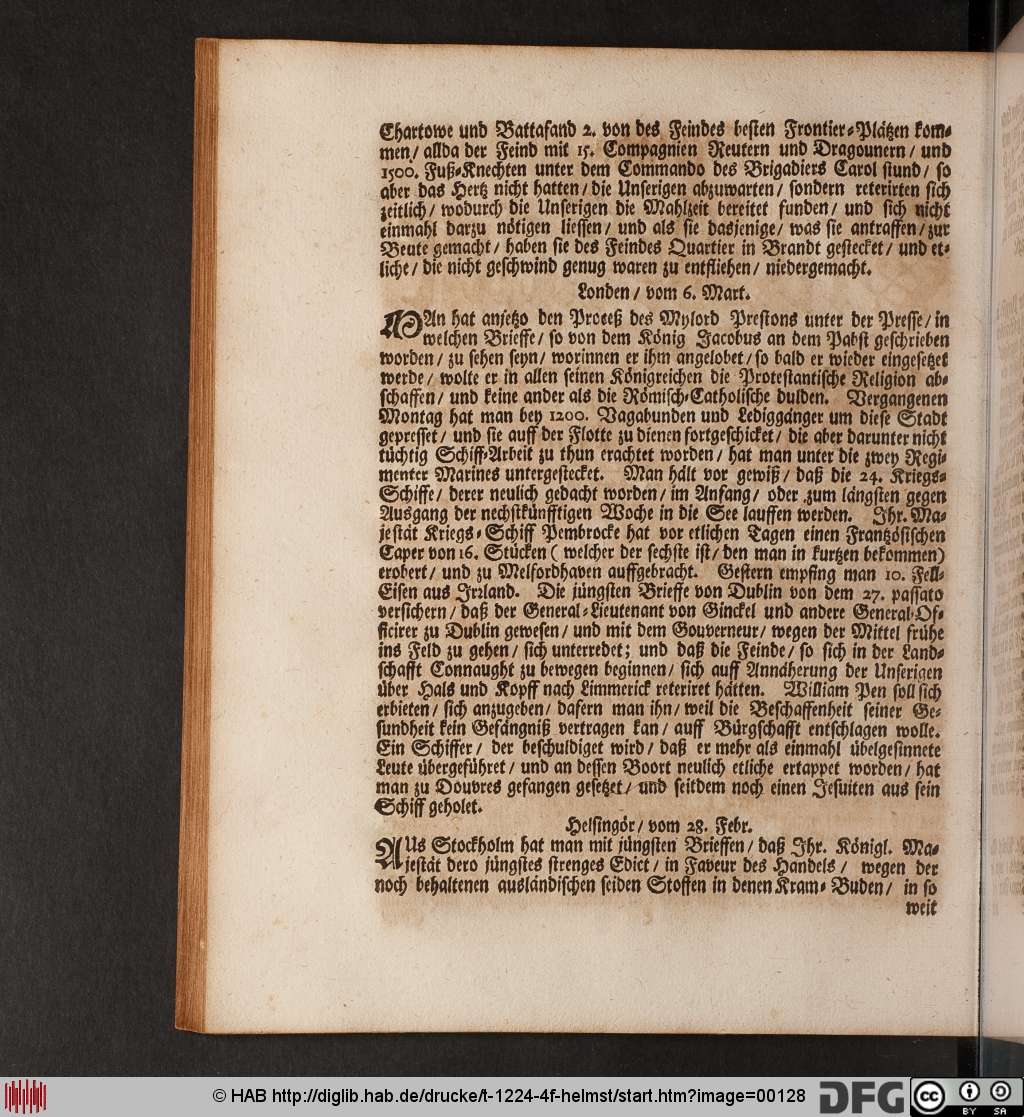 Chartowe und Battafand 2. von des Feindes besten Frontier-Plätzen kom-
men/ allda der Feind mit 15. Compagnien Reutern und Dragounern/ und
1500. Fuß-Knechten unter dem Commando des Brigadiers Carol stund/ so
aber das Hertz nicht hatten/ die Unserigen abzuwarten/ sondern reterirten sich
zeitlich/ wodurch die Unserigen die Mahlzeit bereitet funden/ und sich nicht
einmahl darzu nötigen liessen/ und als sie dasjenige/ was sie antraffen/ zur
Beute gemacht/ haben sie des Feindes Quartier in Brandt gestecket/ und et-
liche/ die nicht geschwind genug waren zu entfliehen/ niedergemacht.
Londen/ vom 6. Mart.
MAn hat anjetzo den Proceß des Mylord Prestons unter der Presse/ in
welchen Brieffe/ so von dem König Jacobus an dem Pabst geschrieben
worden/ zu sehen seyn/ worinnen er ihm angelobet/ so bald er wieder eingesetzet
werde/ wolte er in allen seinen Königreichen die Protestantische Religion ab-
schaffen/ und keine ander als die Römisch-Catholische dulden. Vergangenen
Montag hat man bey 1200. Vagabunden und Lediggänger um diese Stadt
gepresset/ und sie auff der Flotte zu dienen fortgeschicket/ die aber darunter nicht
tüchtig Schiff-Arbeit zu thun erachtet worden/ hat man unter die zwey Regi-
menter Marines untergestecket. Man hält vor gewiß/ daß die 24. Kriegs-
Schiffe/ derer neulich gedacht worden/ im Anfang/ oder zum längsten gegen
Ausgang der nechstkünfftigen Woche in die See lauffen werden. Ihr. Ma-
jestät Kriegs-Schiff Pembrocke hat vor etlichen Tagen einen Frantzösischen
Caper von 16. Stücken (welcher der sechste ist/ den man in kurtzen bekommen)
erobert/ und zu Melfordhaven auffgebracht. Gestern empfing man 10. Fell-
Eisen aus Irrland. Die jüngsten Brieffe von Dublin von dem 27. passato
versichern/ daß der General-Lieutenant von Ginckel und andere General-Of-
ficirer zu Dublin gewesen/ und mit dem Gouverneur/ wegen der Mittel frühe
ins Feld zu gehen/ sich unterredet; und daß die Feinde/ so sich in der Land-
schafft Connaught zu bewegen beginnen/ sich auff Annäherung der Unserigen
über Hals und Kopff nach Limmerick reteriret hätten. William Pen soll sich
erbieten/ sich anzugeben/ dafern man ihn/ weil die Beschaffenheit seiner Ge-
sundheit kein Gefängniß vertragen kan/ auff Bürgschafft entschlagen wolle.
Ein Schiffer/ der beschuldiget wird/ daß er mehr als einmahl übelgesinnete
Leute übergeführet/ und an dessen Boort neulich etliche ertappet worden/ hat
man zu Douvres gefangen gesetzet/ und seitdem noch einen Jesuiten aus sein
Schiff geholet.
Helsingör/ vom 28. Febr.
AUs Stockholm hat man mit jüngsten Brieffen/ daß Ihr. Königl. Ma-
jestät dero jüngstes strenges Edict/ in Faveur des Handels/ wegen der
noch behaltenen ausländischen seiden Stoffen in denen Kram-Buden/ in so
weit
© HAB http://diglib.hab.de/drucke/t-1224-4f-helmst/start.htm?image=00128
DFG
cc
BY SA